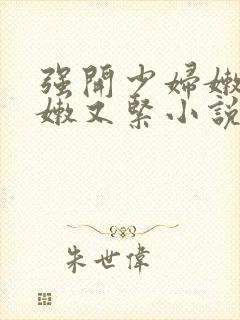 强开少婦嫩
嫩又緊小說
朱世偉